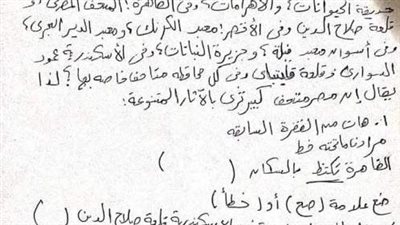 حديقة الحيوانات؟ والأهرامات؟ وفى القاهرة: المتحف المصرى أو
قلعة صلاح الدين وفى الأقصر: معبد الكرنك؟ ومعبد الدير البحرى؟
وفى أسوان معبد فيلة؟ وجزيرة النباتات؟ وفى الأسكندرية عمود
السوارى؟ وقلعة قايتباى وفى كل محافظة متاحف خاصة بها؟ لذا
يقال إن مصر متحف كبير ثرى بالآثار المتنوعة:
١. هات من الفقرة السابقة
مرادف ماتحته خط
القاهرة تكتظ بالسكان ( )
ضع علامة (صح) أو (خطأ)
قلعة صلاح الدين ( )